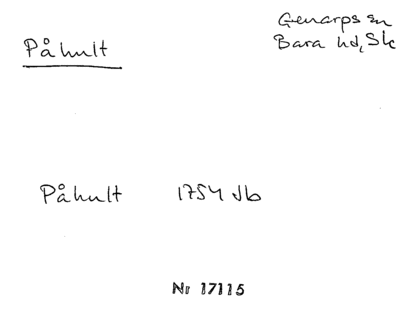 Påhult
Genarps sn
Bara hd, Sk
Påhult 1754 Jb
Nr 17115